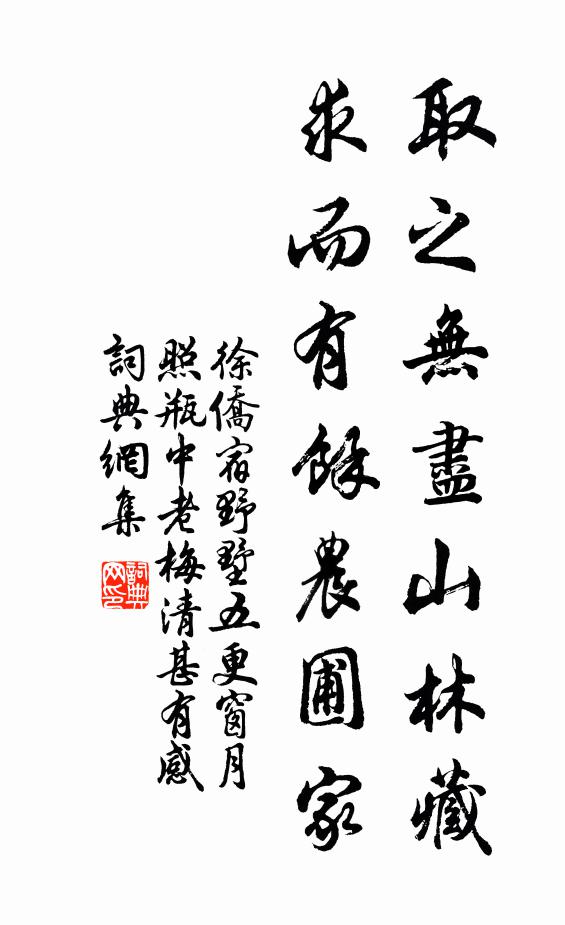 取之無盡山林藏
求而有餘農圃家
徐僑宿野墅五更窗月
照瓶中老梅清甚有感
詞典網集
詞典网印